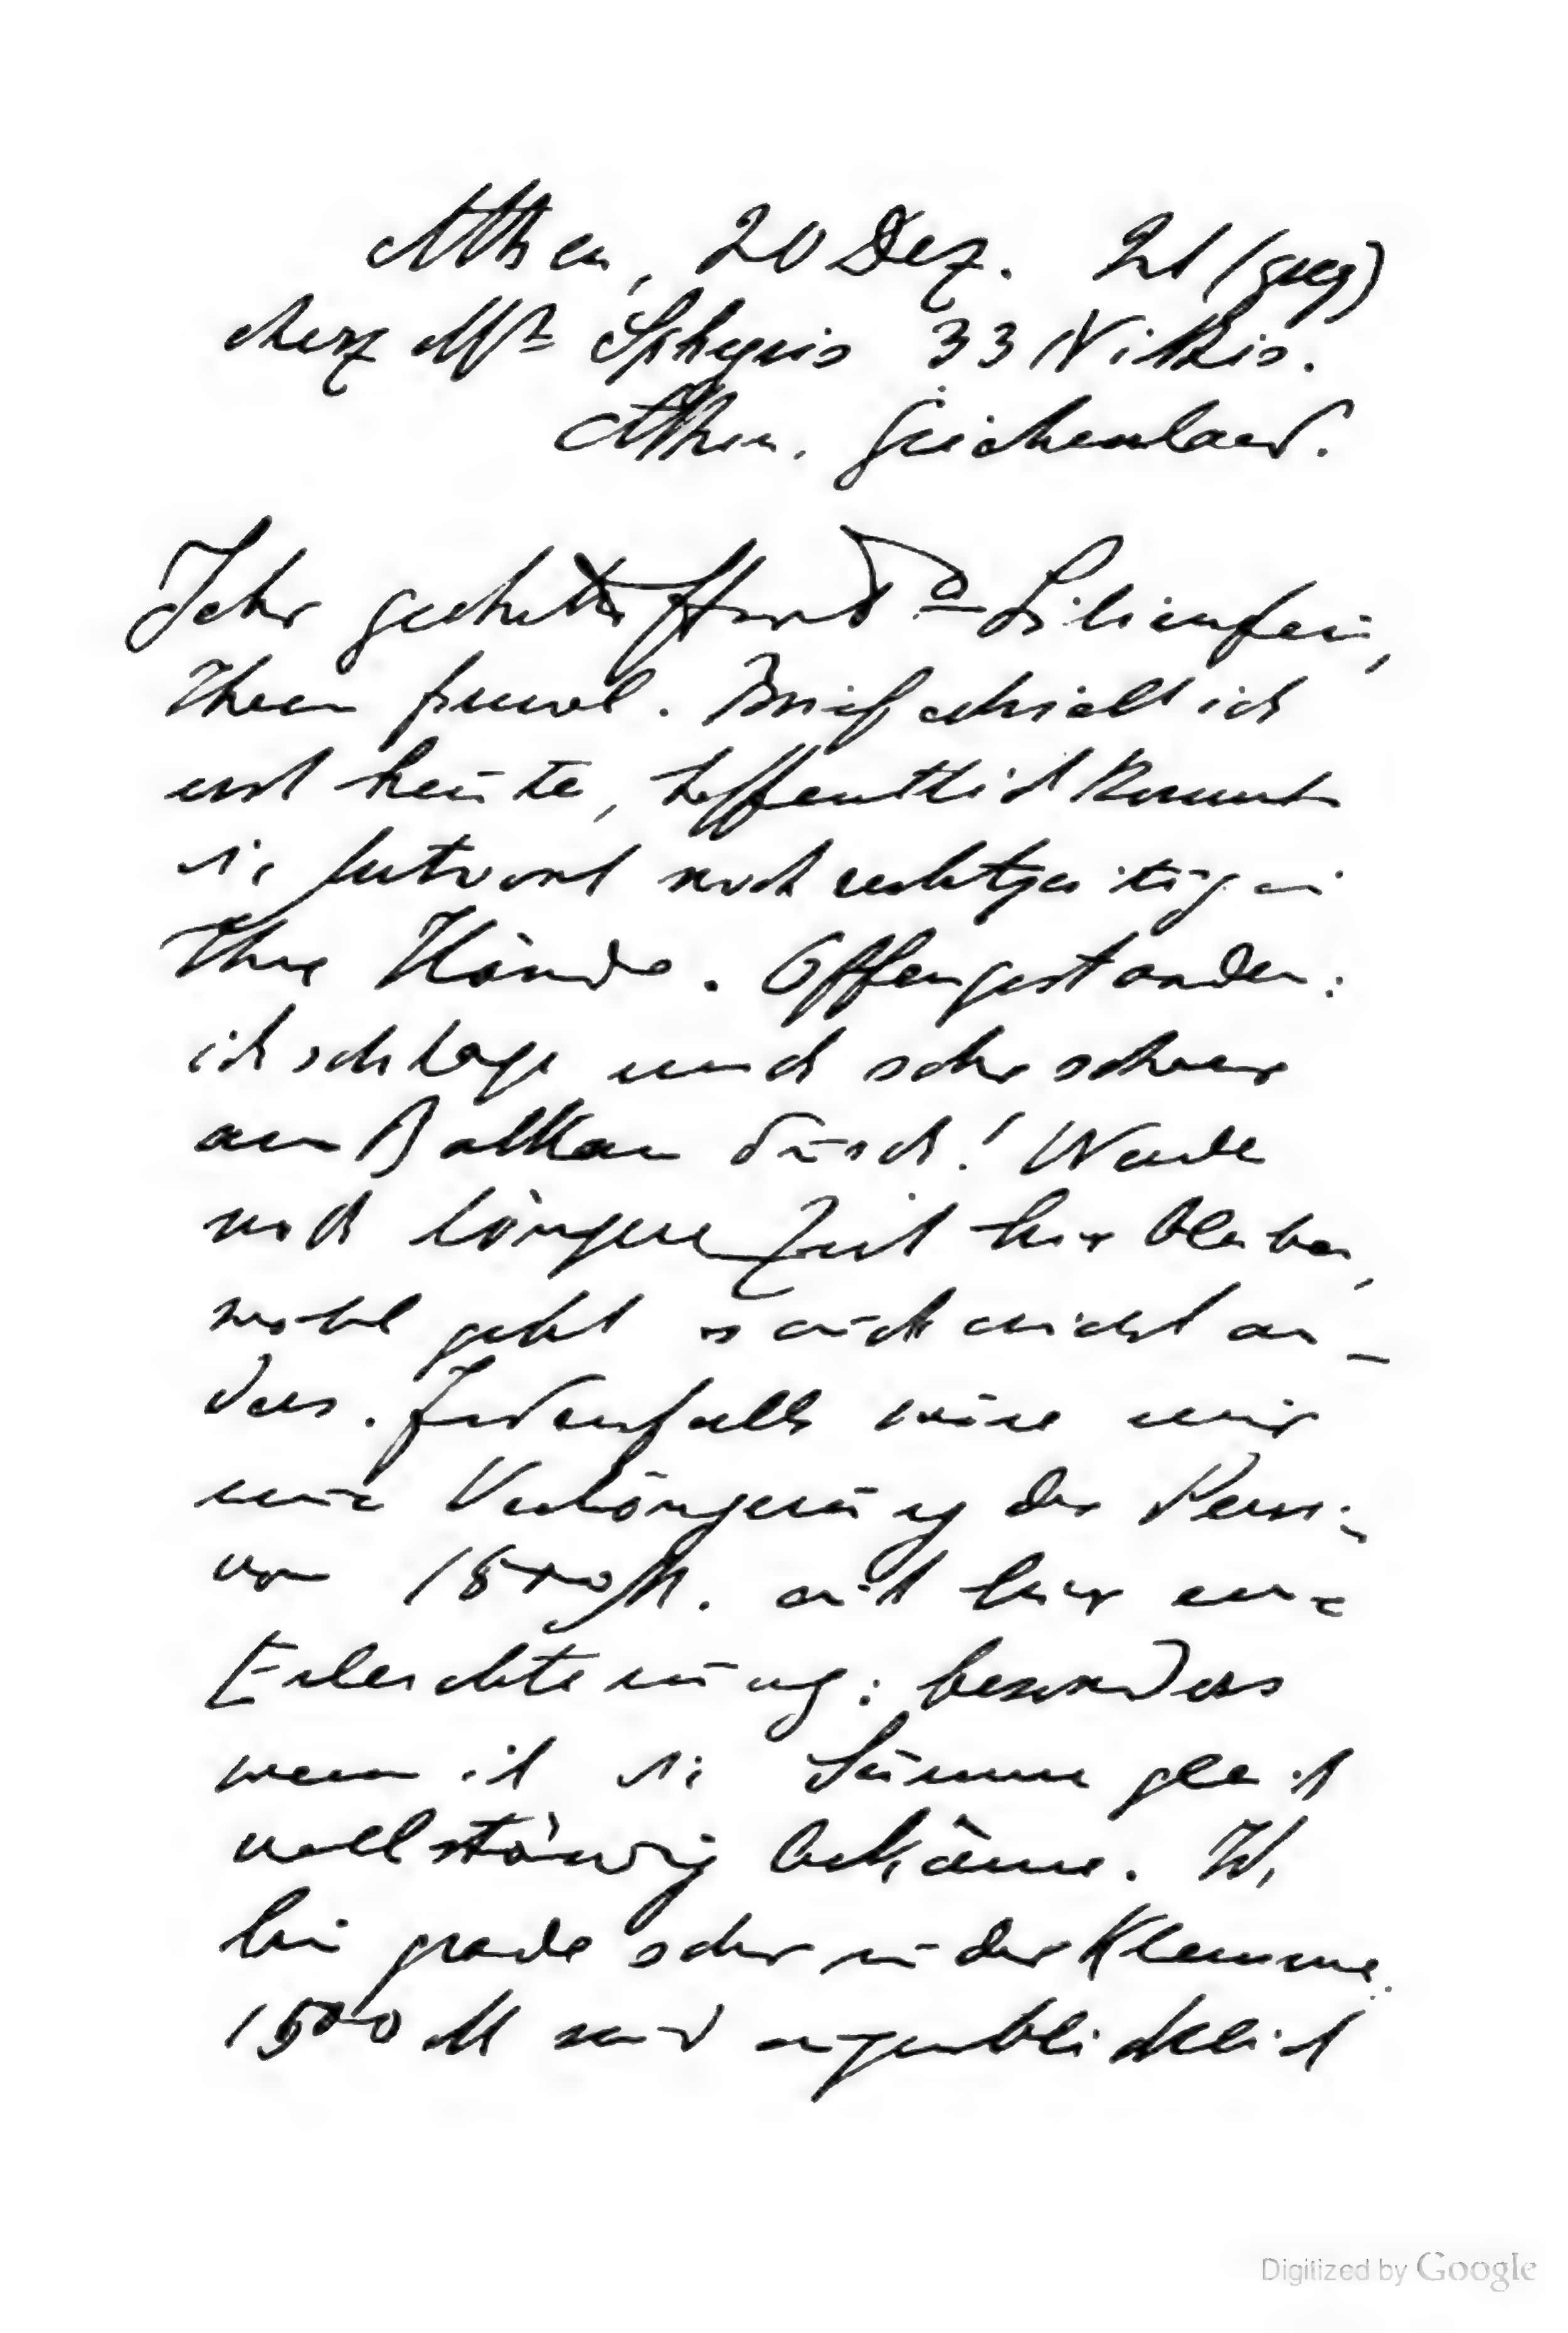 Athen, 20 Dez. 21 (greg)
chez Mr Sphyris 33 Nikkis.
Athen. Griechenland.
Sehr geehrter Herr Dr Lilienfein,
Ihren freundl. Brief erhielt ich
erst heute, hoffentlich kommt
die Antwort noch rechtzeitig in
Ihre Hände. Offengestanden:
ich schlage mich sehr schwer
am Balkan durch! Werde
noch längere Zeit hier bleiben,
wohl geht es auch nicht an-
ders. Jedenfalls wäre mir
eine Verlängerung der Pension
von 1500 M. auch hier eine
Erleichterung: besonders
wenn ich die Summe gleich
vollständig bekäme. Wi
bin grade sehr in der Klemme.
1500 M sind augenblicklich
Digitized by Google